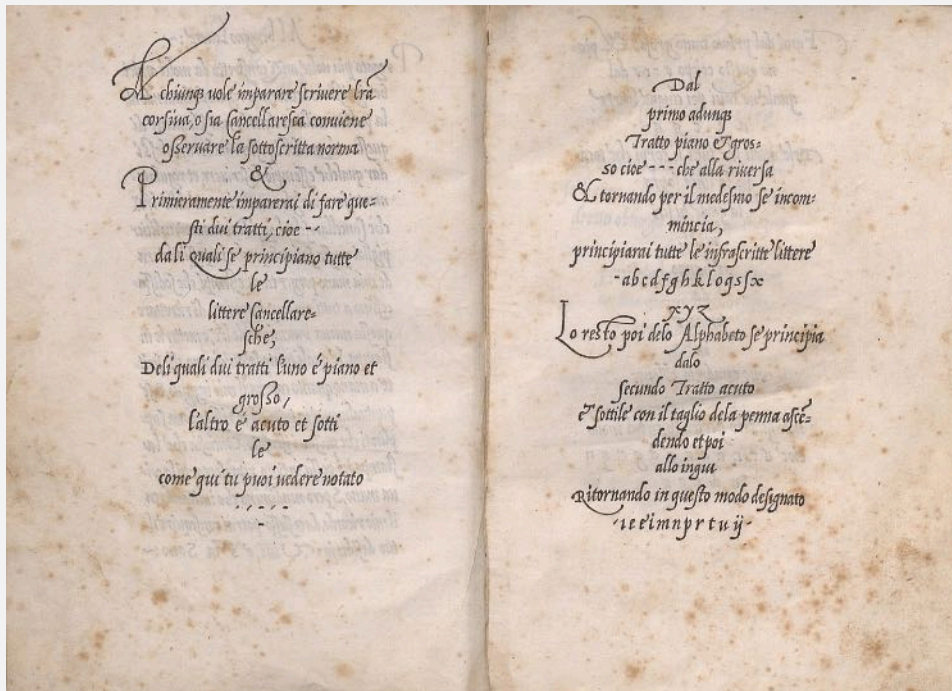 A chiunq; vole imparare scrivere lrã
corsiva, o sia Cancellaresca conviene
osservare la sottoscritta norma
&
Primieramente imparerai di fare que-
sti dui tratti, cioe - -
da li quali se principiano tutte
le
littere Cancellare-
sche,
Deli quali dui tratti l'uno é piano et
grosso,
l'altro é acuto et sotti
le
come qui tu puoi vedere notato
Dal
primo adunq;
Tratto piano & gros-
so cioe - - - che alla riversa
& tornando per il medesmo se incom-
mincia,
principiarai tutte le infrascritte littere
-abcdfghkloqsſx
xyz
Lo resto poi delo Alphabeto se principia
dalo
secundo Tratto acuto
& sottile con il taglio dela penna ascẽ-
dendo et poi
allo ingiu
Ritornando in questo modo designato
-ıeeimnprtuij-